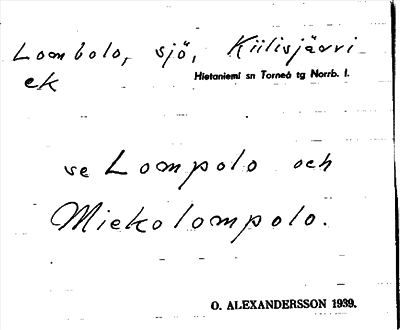 Loombolo, sjö, Kiilisjärvi
ek
Hietaniemi sn Torneå tg Norrb. l.
se Loompolo och
Miekolompolo.
O. ALEXANDERSSON 1939.